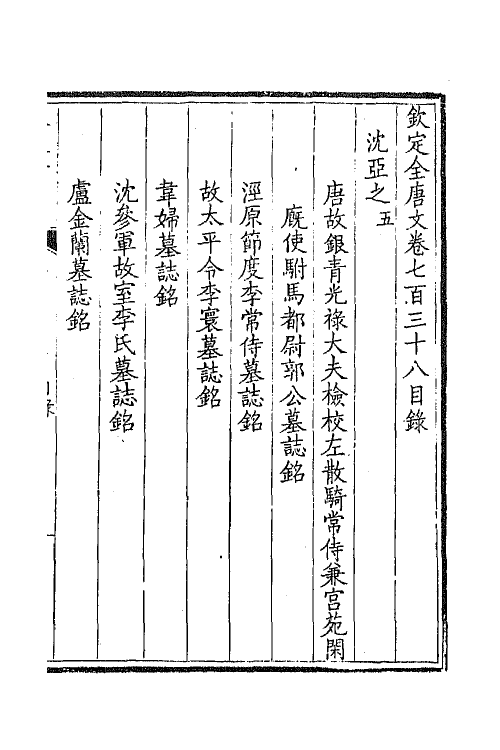 欽定全唐文卷七百三十八目錄
沈亞之五
唐故銀青光祿大夫檢校左散騎常侍兼宮苑閑
廐使駙馬都尉郭公墓誌銘
涇原節度李常侍墓誌銘
故太平令李寰墓誌銘
韋婦墓誌銘
沈參軍故室李氏墓誌銘
盧金蘭墓誌銘